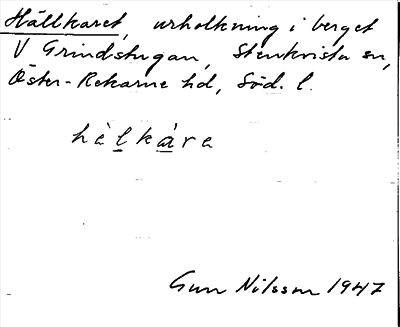 Hällkaret, urholkning i berget
V Grindstugan, Stenkvista sn,
Öster-Rekarne hd, Söd. l.
hèlkàre
Gun Nilsson 1947